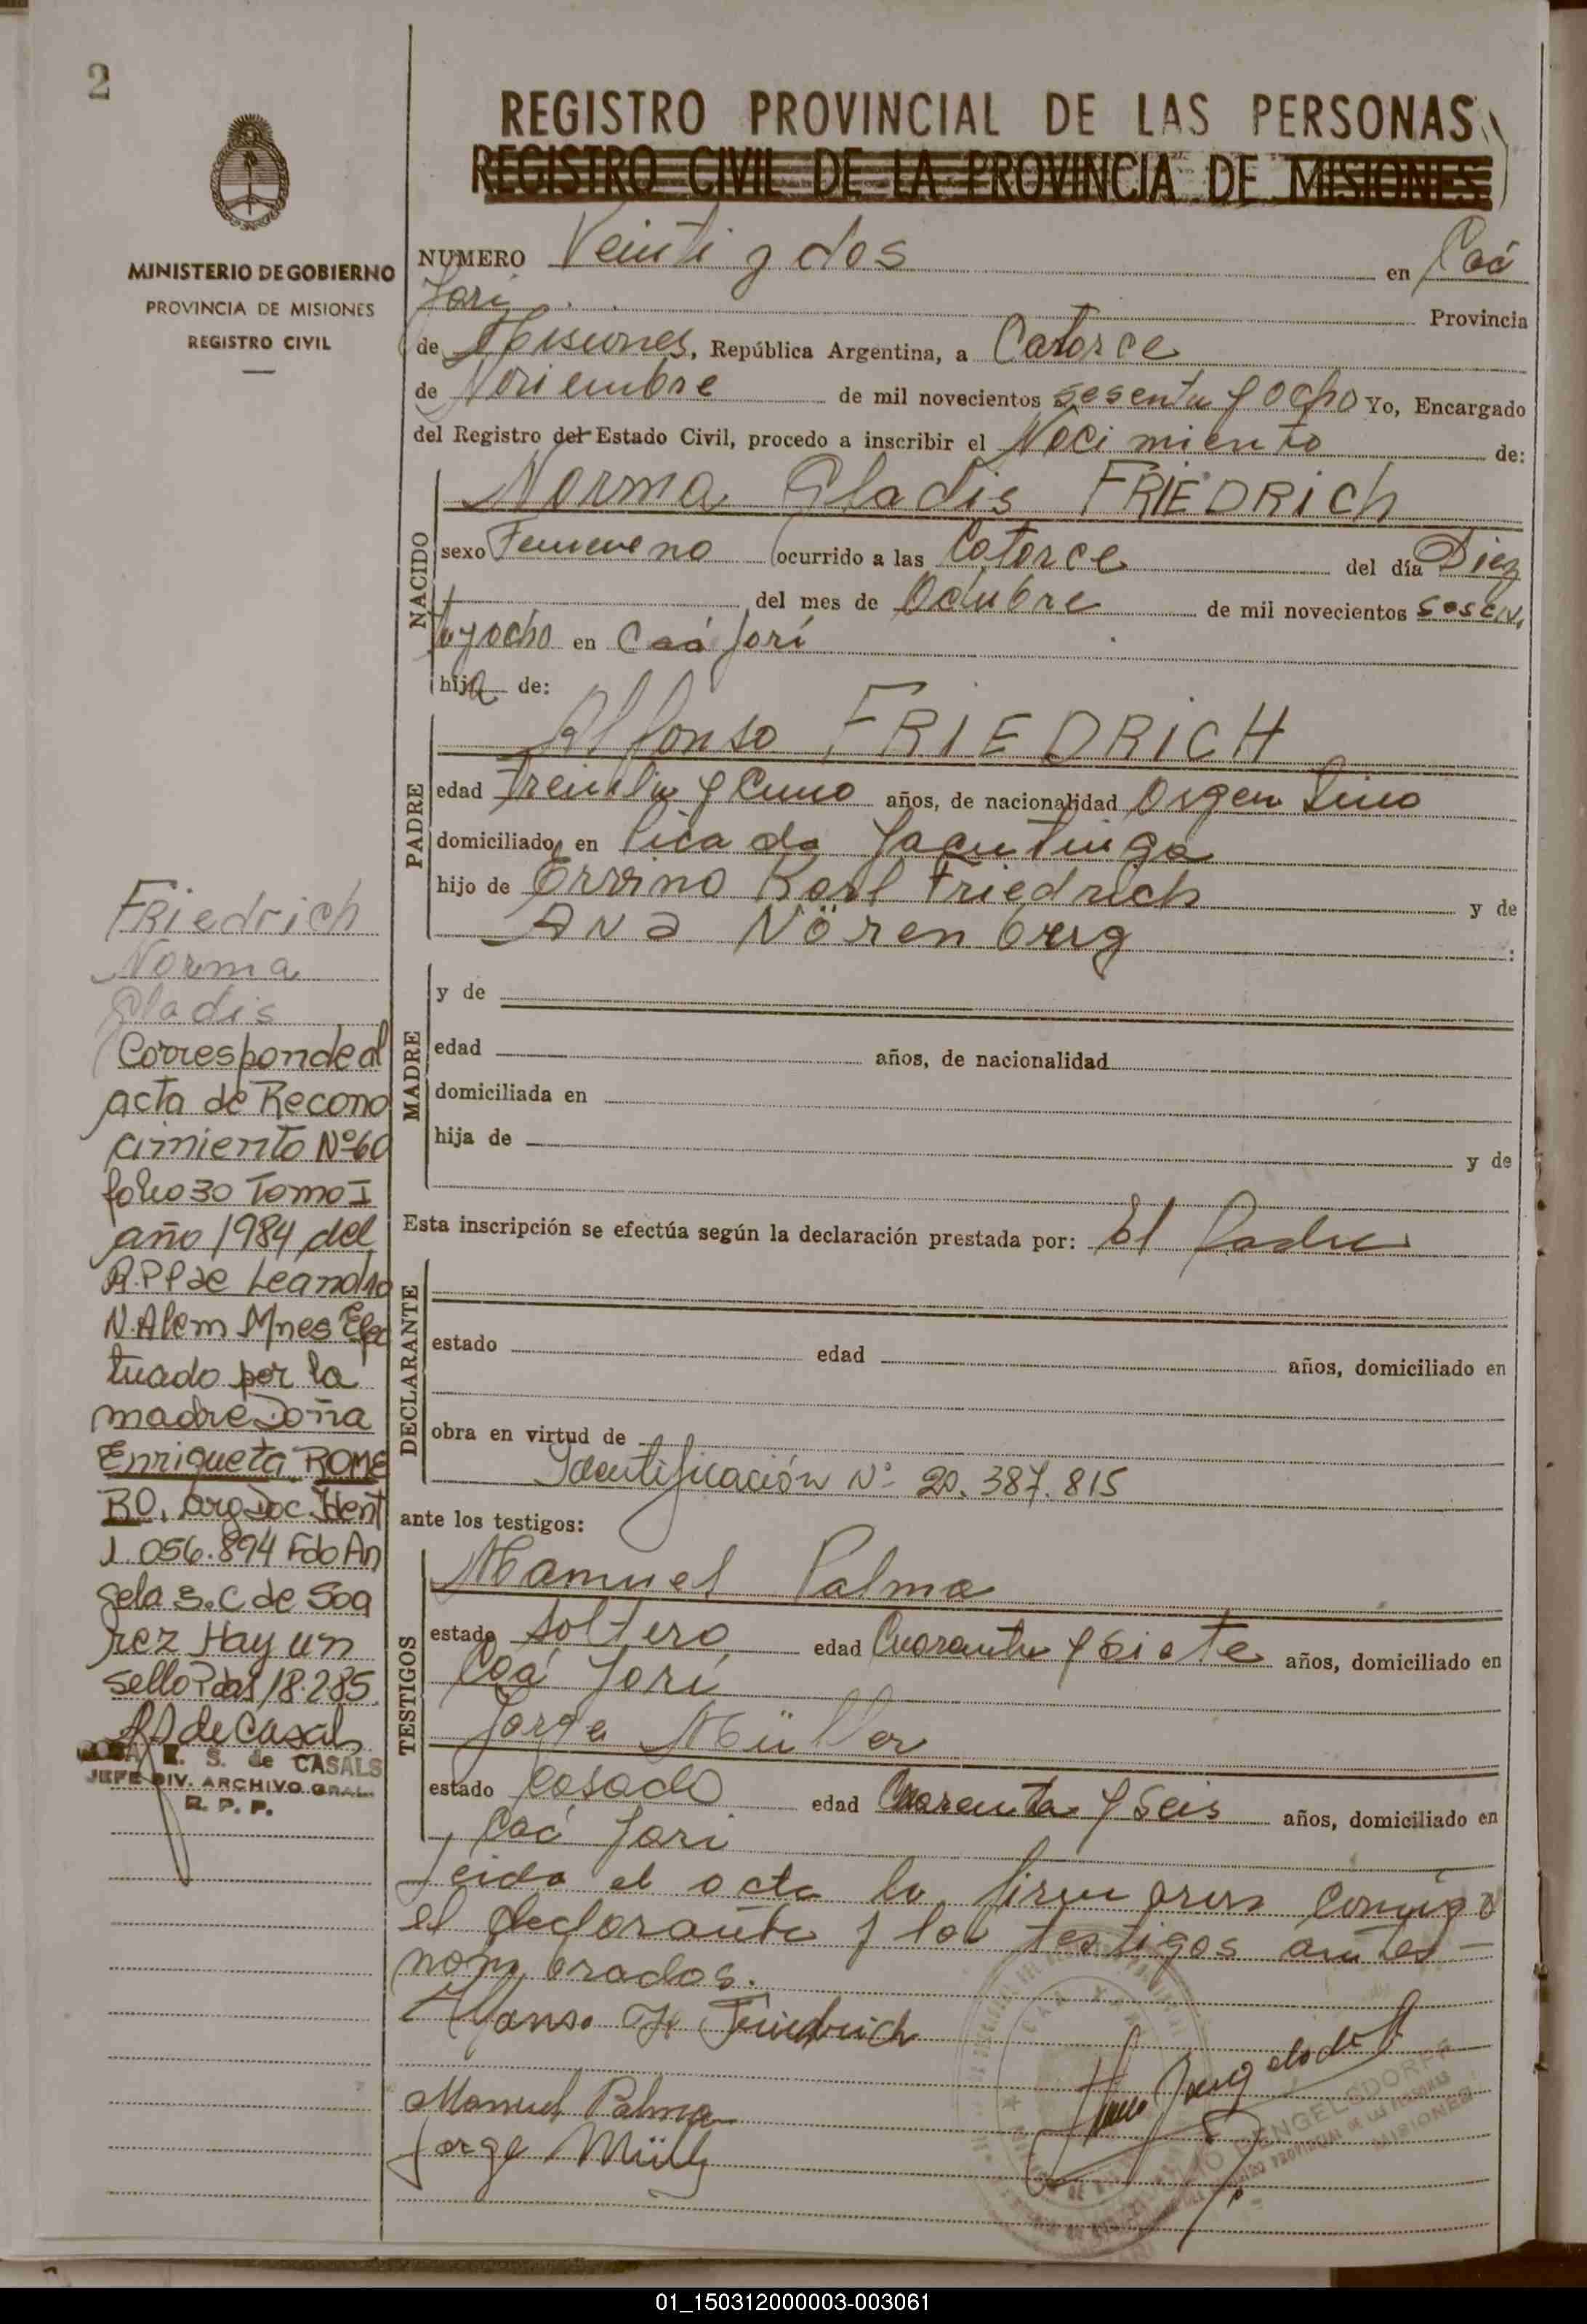 2
REGISTRO PROVINCIAL DE LAS PERSONAS
REGISTRO CIVIL DE LA PROVINCIA DE MISIONES
MINISTERIO DE GOBIERNO
PROVINCIA DE MISIONES
REGISTRO CIVIL
NUMERO Veinti y dos en Caá
Yarí Provincia
de Misiones, República Argentina, a Catorce
de Noviembre de mil novecientos sesenta y ocho Yo, Encargado
del Registro del Estado Civil, procedo a inscribir el Nacimiento de:
NACIDO
Norma Gladis FRIEDRICH
sexo Femeneno ocurrido a las Catorce del día Diez
del mes de Octubre de mil novecientos sesen
ta y ocho en Caá Yarí
hija de:
PADRE
Alfonso FRIEDRICH
edad Treinta y Cuno años, de nacionalidad Argentino
domiciliado en Picada Yacutinga
hijo de Ervino Karl Friedrich y de
Ana Nörenberg :
MADRE
y de
edad años, de nacionalidad
domiciliada en
hija de y de
Esta inscripción se efectúa según la declaración prestada por: El Padre
DECLARANTE
estado edad años, domiciliado en
obra en virtud de
Identificación Nº 20.387.815
ante los testigos:
TESTIGOS
Manuel Palma
estado soltero edad Cuarenta y siete años, domiciliado en
Caá Yarí
Jorge Müller
estado Casado edad Cuarenta y seis años, domiciliado en
Caá Yari
Leida el acta la firmaron conmigo
el declarante y los testigos antes
nombrados.
Alfonso Friedrich
Manuel Palma
Jorge Müller
ENGELSDORFF
MISIONES
Friedrich
Norma
Gladis
Corresponde al
acta de Recono
cimiento Nº 60
folio 30 Tomo I
año 1984 del
R.P.P de Leandro
N. Alem Mnes Efec
tuado por la
madre Doña
Enriqueta ROME
RO, Arg Doc. Ident
1.056.894 Fdo An
gela S.C de Soa
rez Hay un
sello Pdas 18.285
de Casals
R. S. de CASALS
JEFE DIV. ARCHIVO GRAL.
R. P. P.
01_150312000003-003061